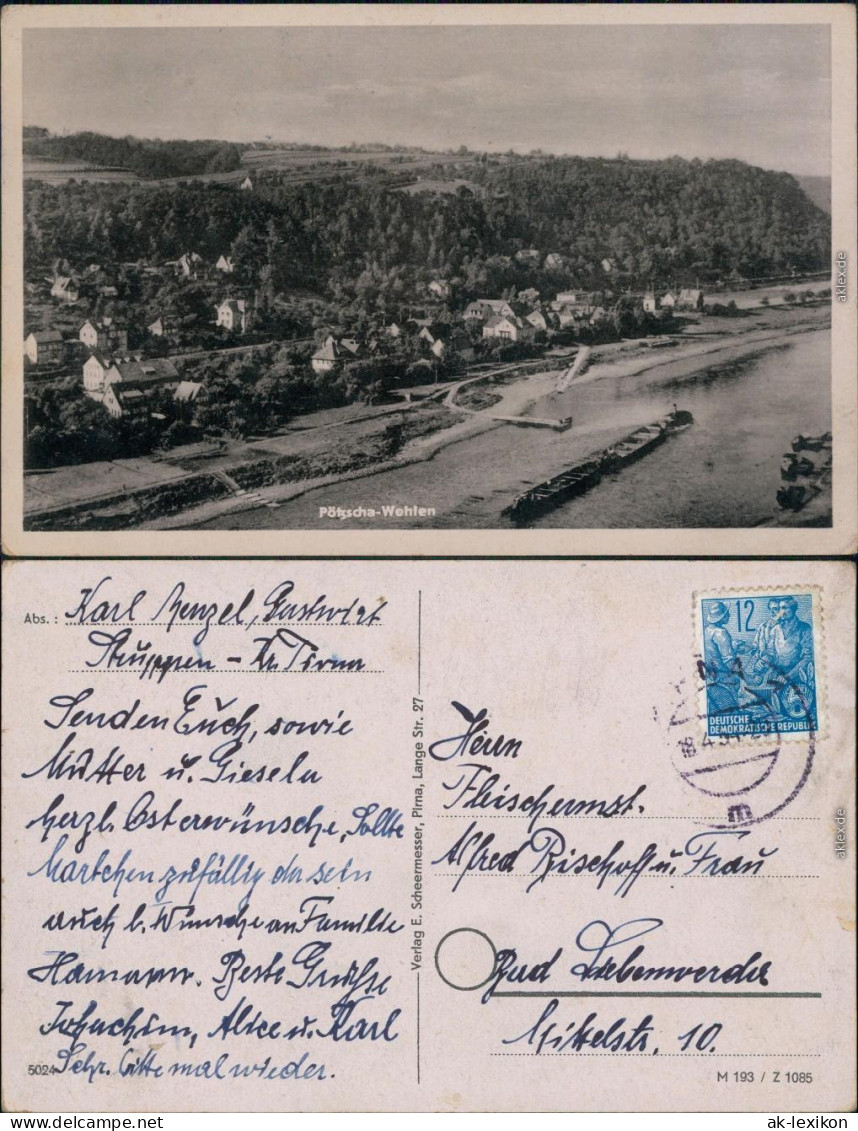 Pötzscha-Wehlen
aklex.de
Abs.: Karl Menzel, Gastwirt
Struppen - Kr. Pirna
Senden Euch, sowie
Mutter u. Giesela
herzl. Osterwünsche, Sollte
Martchen zufällig da sein
auch b. Wünsche an Familie
Hamann. Beste Grüße
Joachim, Alice u. Karl
Schr. bitte mal wieder.
5024
Verlag E. Scheermesser, Pirna, Lange Str. 27
12
DEUTSCHE
DEMOKRATISCHE REPUBLIK
Herrn
Fleischermst.
Alfred Bischoff u. Frau
Bad Liebenwerda
Mittelstr. 10.
M 193 / Z 1085
aklex.de
ak-lexikon
ak-lexikon